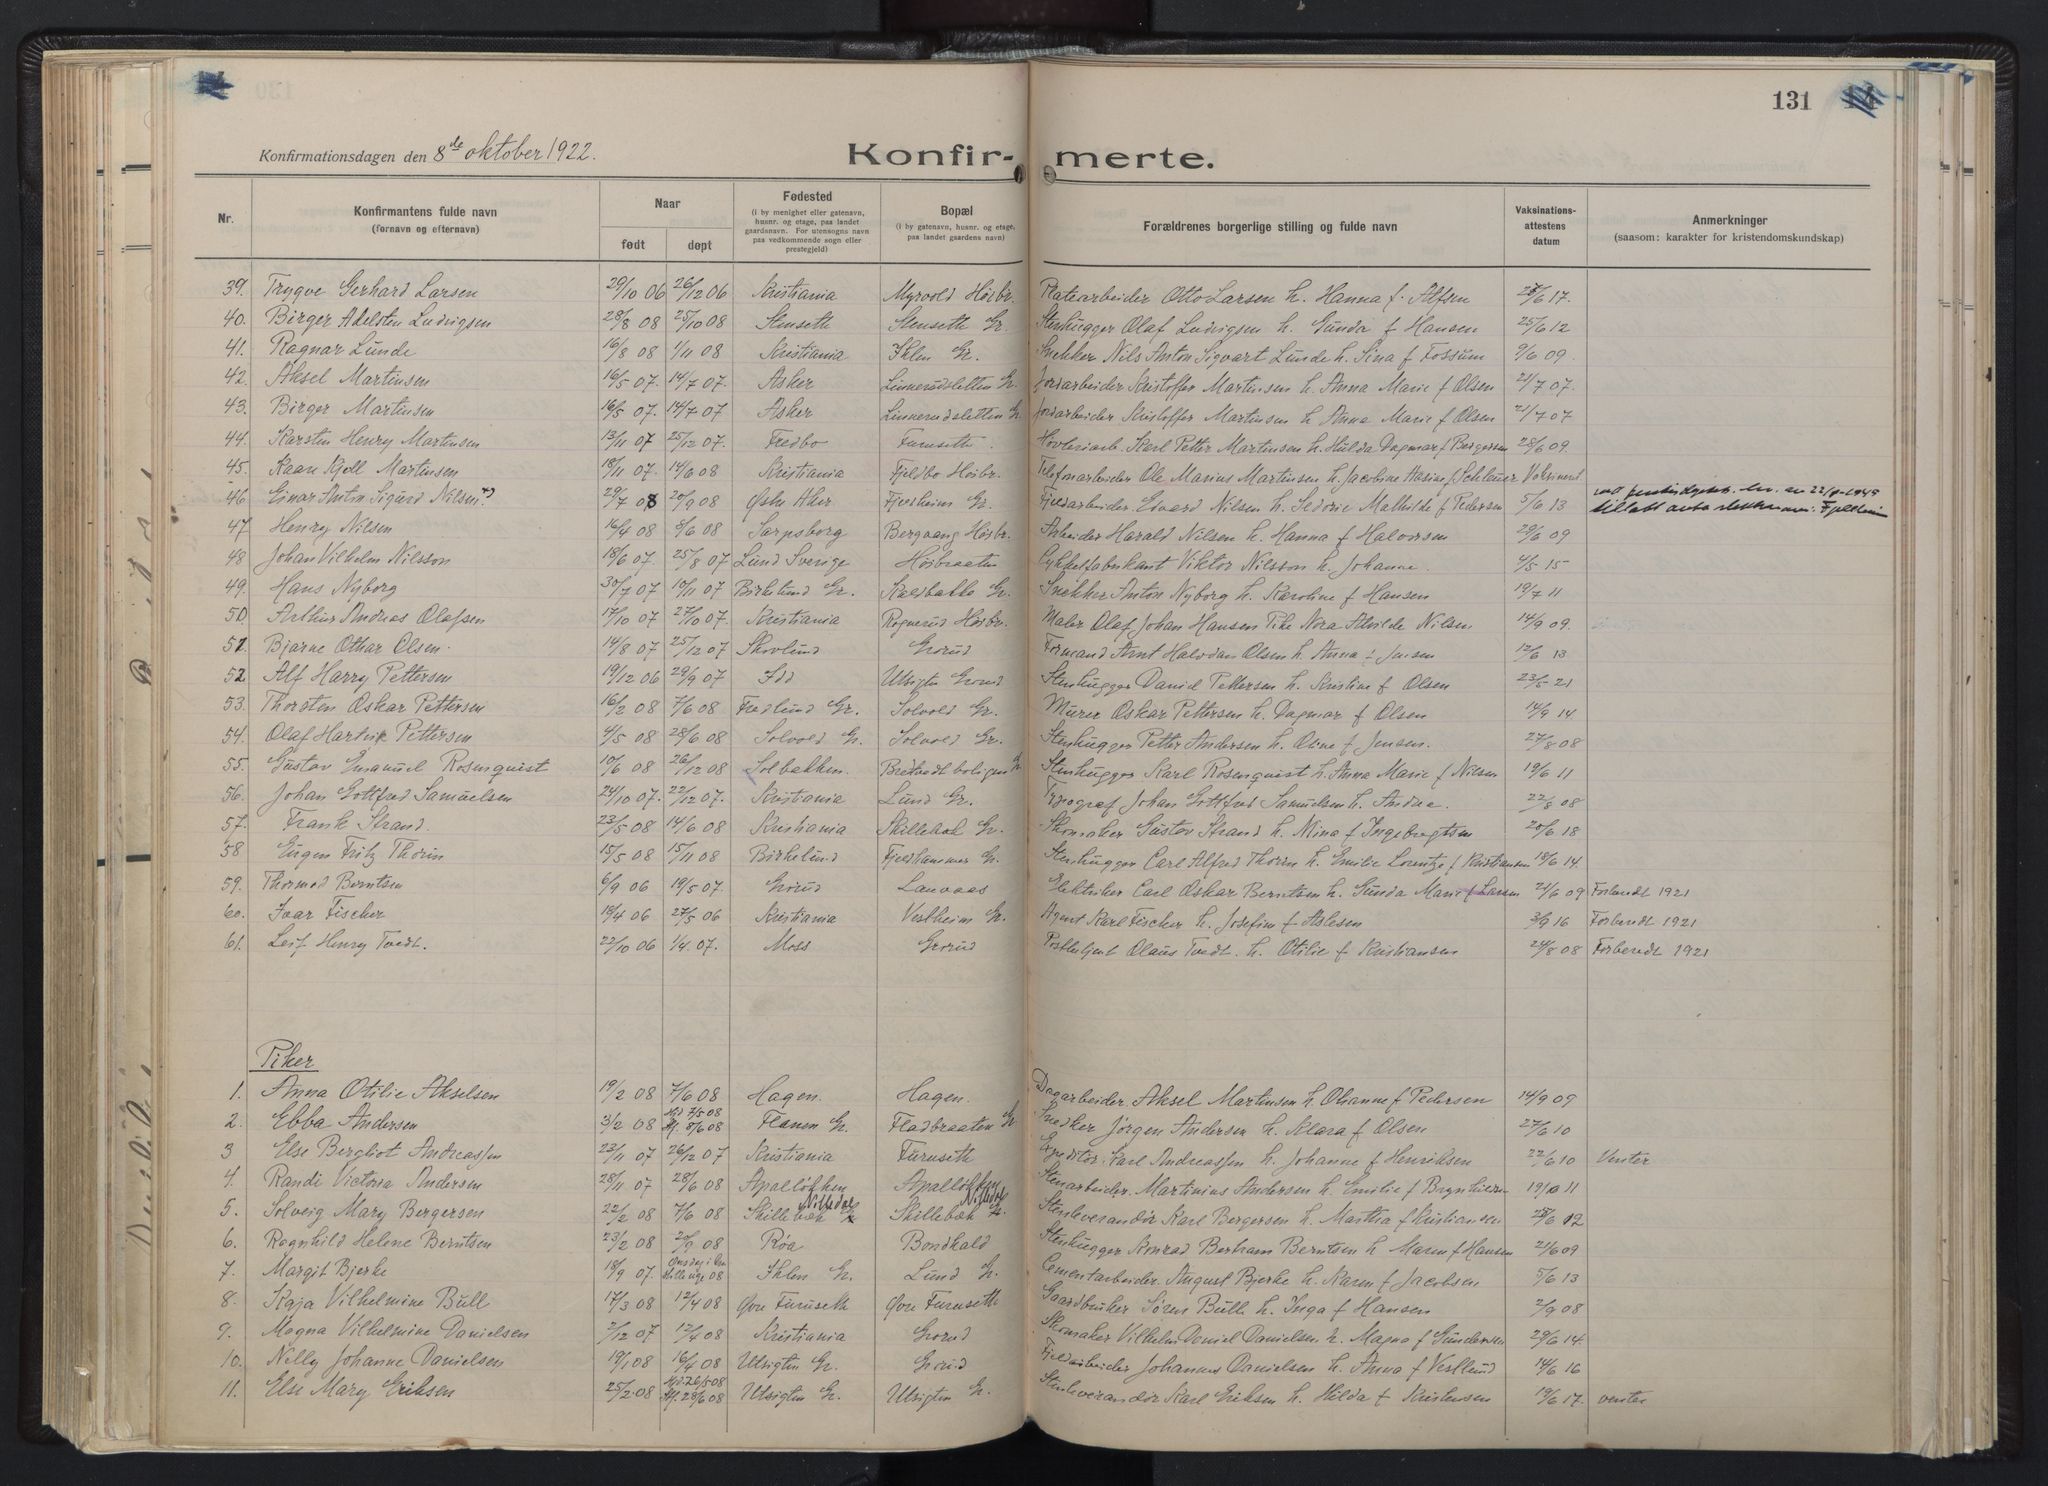 131
Konfirmationsdagen den 8de oktober 1922.
Konfir- merte.
Nr. Konfirmantens fulde navn (fornavn og efternavn) Naar født døpt Fødested (i by menighet eller gatenavn, husnr. og etage, paa landet gaardsnavn. For utensogns navn paa vedkommende sogn eller prestegjeld) Bopæl (i by gatenavn, husnr. og etage, paa landet gaardens navn) Forældrenes borgerlige stilling og fulde navn Vaksinations-attestens datum Anmerkninger (saasom: karakter for kristendomskundskap)
39. Trygve Gerhard Larsen 29/10 06 26/12 06 Kristiania Myrvold Høibr. Platearbeider Otto Larsen h. Hanna f. Alfsen 28/6 17.
40. Birger Adelsten Ludvigsen 28/8 08 25/10 08 Stenseth Stenseth Gr. Stenhugger Olaf Ludvigsen h. Gunda f Hansen 25/6 12
41. Ragnar Lunde 16/8 08 1/11 08 Kristiania Gr. Snekker Nils Anton Sigvart Lunde h. Sina f Fossum 9/6 09.
42. Aksel Martinsen 16/5 07. 14/7 07. Asker Linnerudsletten Gr. Jordarbeider Kristoffer Martinsen h. Anna Marie f Olsen 21/7 07.
43. Birger Martinsen 16/5 07. 14/7 07 Asker Linnerudsletten Gr Jordarbeider Kristoffer Martinsen h Anna Marie f Olsen 21/7 07
44. Karsten Henry Martinsen 13/11 07 25/12 07. Fredbo Furuseth. Høvleriarb. Karl Petter Martinsen h. Hulda Dagmar f Bergersen 28/6 09.
45. Kaare Kjell Martinsen 18/11 07. 14/6 08 Kristiania Fjeldbo Høibr. Telefonarbeider Ole Marius Martinsen h. Jacobine f Schlauer Vaksinert
46. Einar Anton Sigurd Nilsen +) 29/7 08 20/9 08 Østre Aker Fjeldheim Gr. Fjeldarbeider Edvard Nilsen h. Sedorie Mathilde f Pedersen 5/6 13 ved br. av 22/9-1945 tillatt anta slektsnavn: Fjellheim
47. Henry Nilsen 16/4 08 8/6 08 Sarpsborg Bergvang Høibr. Arbeider Harald Nilsen h. Hanna f Halvorsen 29/6 09
48. Johan Vilhelm Nilsson 18/6 07. 25/8 07 Lund Sverige Høibraaten Cykkelfabrikant Viktor Nilsson h. Johanne. 4/5 15
49. Hans Nyborg 30/7 07 10/11 07 Birkelund Gr. Kaldbakke Gr. Snekker Anton Nyborg h. Karoline f Hansen 19/7 11
50. Arthur Andreas Olafsen 17/10 07 27/10 07. Kristiania Rognerud Høibr. Maler Olaf Johan Hansen Pike Nora Alvilde Nilsen 14/9 09.
51. Bjarne Othar Olsen. 14/8 07 25/12 07 Skovlund Grorud Formand Arnt Halvdan Olsen h. Anna f Jensen 12/6 13
52. Alf Harry Pettersen 19/12 06 29/9 07 Idd Utsigten Grorud Stenhugger Daniel Pettersen h. Kristine f Olsen 23/5 21
53. Thorsten Oskar Pettersen 16/2 08 7/6 08 Fredlund Gr. Solvold Gr. Murer Oskar Pettersen h. Dagmar f Olsen 14/9 14
54. Olaf Hartvik Pettersen 4/5 08 28/6 08 Solvold Gr. Solvold Gr. Stenhugger Petter Andersen h. Oline f Jensen. 27/8 08
55. Gustav Emanuel Rosenquist 10/6 08 26/12 08 Solbakken. Bredtvedt boligen Gr Stenhugger Karl Rosenquist h. Anna Marie f Nilsen 19/6 11
56. Johan Gottfred Samuelsen 24/10 07. 22/12 07. Kristiania Lund Gr. Typograf Johan Gottfred Samuelsen h. Andrea. 22/8 08
57. Frank Strand. 23/5 08 14/6 08 Kristiania Skillebæk Gr. Skomaker Gustav Strand h. Mina f Ingebregtsen 20/6 18
58 Eugen Fritz Thorin 15/5 08 15/11 08 Birkelund Fjeldhammer Gr. Stenhugger Carl Alfred Thorin h. Emilie Lorentze f Kristiansen 18/6 14.
59. Thormod Berntsen 6/9 06 19/5 07. Grorud Lauvaas Elektriker Carl Oskar Berntsen h. Gunda Marie f Larsen 21/6 09 Forberedt 1921
60. Ivar Fischer 19/4 06 27/5 06 Kristiania Vestheim Gr. Agent Karl Fischer h. Josefine f Aslesen 3/9 16 Forberedt 1921
61. Leif Henry Tvedt. 22/10 06 1/4 07. Moss Grorud Postbetjent Olaus Tvedt. h. Otilie f Kristiansen 24/8 08 Forberedt 1921
Piker
1. Anna Otilie Akselsen 19/2 08 7/6 08 Hagen. Hagen. Dagarbeider. Aksel Martinsen h. Oleanne f Pedersen 14/9 09
2. Ebba Andersen 3/2 08 Hjd 7/5 08 Kf. 8/6 08 Flaaen Gr. Fladbraaten Gr Snedker Jørgen Andersen h. Klara f Olsen 27/6 10
3 Else Bergliot Andreassen 23/11 07 26/12 07 Kristiania Furuseth Expeditør. Karl Andreassen h. Johanne f Henriksen 22/6 10 Venter
4. Randi Victoria Andersen 28/11 07 28/6 08 Apalløkken Apalløkken Stenarbeider. Martinius Andersen h. Emilie f Brynhildsen 19/10 11
5. Solveig Mary Bergersen 22/2 08 7/6 08 Skillebæk Nittedal Skillebæk Nittedal Stenleverandør Karl Bergersen h. Martha f Kristiansen 28/6 12
6. Ragnhild Helene Berntsen 23/2 08 20/9 08 Røa Bondkald Stenhugger Konrad Bertram Berntsen h Maren f Hansen 21/6 09
7. Margit Bjerke 18/9 07. Onsdag i den stille uge 08 Gr. Lund Gr. Cementarbeider. August Bjerke h. Karen f Jacobsen 5/6 13
8. Kaja Vilhelmine Bull 17/3 08 12/4 08 Øvre Furuseth Øvre Furuseth Gaardbruker Søren Bull h. Inga f Hansen 2/9 08
9. Magna Vilhelmine Danielsen 2/12 07 12/4 08 Kristiania Grorud Skomaker Vilhelm Daniel Danielsen h. Magna f Gundersen 29/6 14.
10. Nelly Johanne Danielsen 19/1 08 16/4 08 Utsigten Gr. Grorud Fjeldarbeider Johannes Danielsen h. Anna f Vestlund 14/6 16
11. Else Mary Eriksen 25/2 08 Hjd. 26/5 08 Kf. 28/6 08 Utsigten Gr. Utsigten Gr. Stenleverandør Karl Eriksen h. Hilda f Kristensen 19/6 17. venter